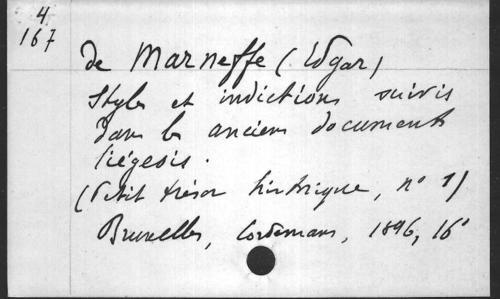 4
167
de Marneffe (Edgar)
Styles et indictions suivis
dans les anciens documents
liégeois.
(Petit trésor historique, n° 1)
Bruxelles, Cordemans, 1896, 16°